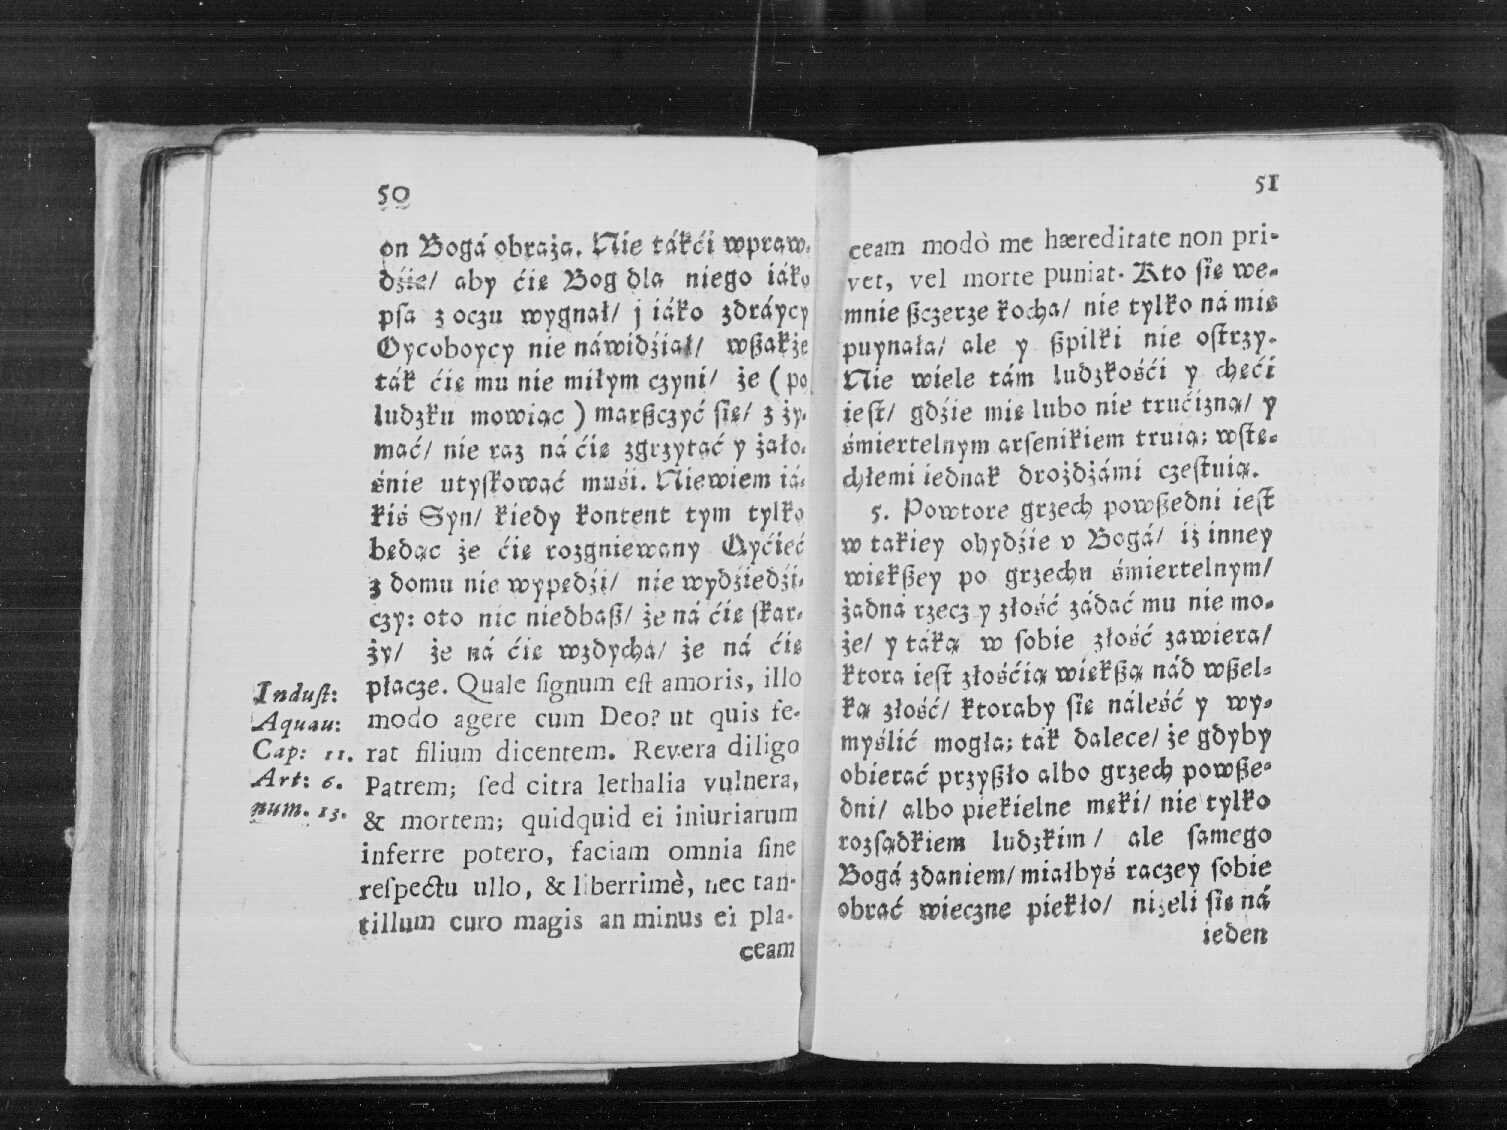 50
on Bogá obraża. Nie tákći wpraw-
dźie/ aby ćię Bog dla niego iáko
psa z oczu wygnał/ j iáko zdráycy
Oycoboycy nie náwidźiał/ wßakże
ták ćię mu nie miłym czyni/ że (po
ludzku mowiąc) marßczyć się/ z ży-
mać/ nie raz ná ćię zgrzytać y żało-
śnie utyskować muśi. Niewiem iá-
kiś Syn/ kiedy kontent tym tylko
będąc że ćię rozgniewany Oyćieć
z domu nie wypędźi/ nie wydźiedźi-
czy: oto nic niedbaß/ że ná ćię skar-
ży/ że ná ćię wzdycha/ że ná ćię
płacze. Quale ſignum eſt amoris, illo
modo agere cum Deo? ut quis fe-
rat filium dicentem. Revera diligo
Patrem; ſed citra lethalia vulnera,
& mortem; quidquid ei iniuriarum
inferre potero, faciam omnia ſine
reſpectu ullo, & liberrimè, nec tan-
tillum curo magis an minus ei pla-
ceam
Induſt:
Aquau:
Cap: 11.
Art: 6.
num. 13.
51
ceam modò me hæreditate non pri-
vet, vel morte puniat. Kto się we-
mnie ßczerze kocha/ nie tylko ná mię
puynała/ ale y ßpilki nie ostrzy.
Nie wiele tám ludzkośći y chęći
iest/ gdźie mię lubo nie trućizną/ y
śmiertelnym arsenikiem truią; wstę-
chłemi iednak drożdżámi częstuią.
5. Powtore grzech powßedni iest
w takiey ohydźie v Bogá/ iż inney
większey po grzechu śmiertelnym/
żadna rzecz y złość zádać mu nie mo-
że/ y táką w sobie złość zawiera/
ktora iest złośćią większą nád wßel-
ką złość/ ktoraby się náleść y wy-
myślić mogła; tak dalece/ że gdyby
obierać przyßło albo grzech powße-
dni/ albo piekielne męki/ nie tylko
rozsądkiem ludzkim/ ale samego
Bogá zdaniem/ miałbyś raczey sobie
obrać wieczne piekło/ niżeli się ná
ieden